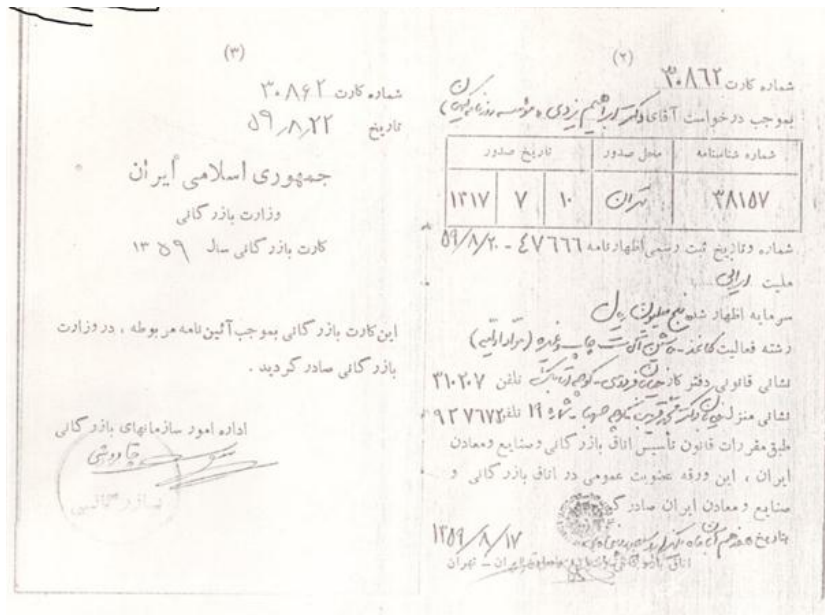 (۲)
شماره کارت ۳۰۸۶۲
بموجب درخواست آقای دکتر ابراهیم یزدی موسسه روزنامه کیهان
شماره شناسنامه محل صدور تاریخ صدور
۳۸۱۵۷ تهران ۱۰ ۷ ۱۳۱۷
شماره وتاریخ ثبت رسمی اظهارنامه ۴۷۶۶۶ - ۵۹/۸/۲۰
ملیت ایرانی
سرمایه اظهار شده پنج میلیون ریال
رشته فعالیت کاغذ - ماشین آلات چاپ وغیره
نشانی قانونی دفتر کار خیابان فردوسی - کوچه تلفن ۳۱۰۲۰۷
نشانی منزل خیابان دکتر شماره ۱۹ تلفن ۹۲۷۶۷۲
طبق مقررات قانون تأسیس اتاق بازرگانی وصنایع ومعادن
ایران ، این ورقه عضویت عمومی در اتاق بازرگانی و
صنایع و معادن ایران صادر
بتاریخ هفدهم آبان ماه ۱۳۵۹/۸/۱۷
اتاق بازرگانی ایران - تهران
(۳)
شماره کارت ۳۰۸۶۲
تاریخ ۵۹٫۸٫۲۲
جمهوری اسلامی ایران
وزارت بازرگانی
کارت بازرگانی سال ۱۳۵۹
این کارت بازرگانی بموجب آئین نامه مربوطه ، در وزارت
بازرگانی صادر گردید .
اداره امور سازمانهای بازرگانی